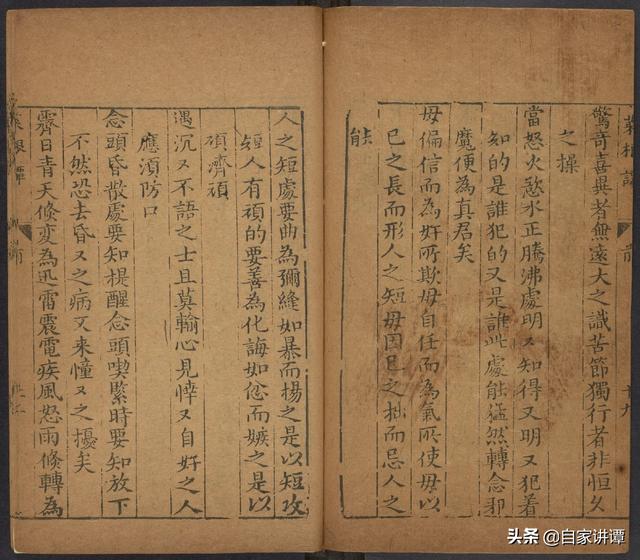 驚奇喜異者無遠大之識苦節獨行者非恒久
之操
當怒火慾水正騰沸處明又知得又明又犯着
知的是誰犯的又是誰此處能猛然轉念邪
魔便為真君矣
毋偏信而為奸所欺毋自任而為氣所使毋以
已之長而形人之短毋因已之拙而忌人之
能
人之短處要曲為彌縫如暴而揚之是以短攻
短人有頑的要善為化誨如忿而嫉之是以
頑濟頑
遇沉又不語之士且莫輸心見悻又自好之人
應須防口
念頭昏散處要知提醒念頭喫緊時要知放下
不然恐去昏又之病又來憧又之擾矣
霽日青天倐変為迅雷震電疾風怒雨倐轉為
頭条 @自家讲谭